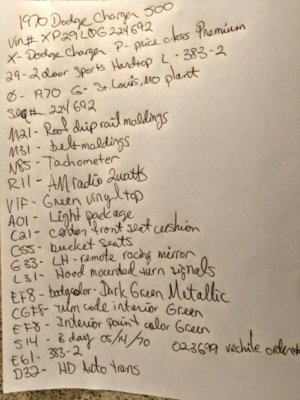 1970 Dodge Charger 500
Vin# XP29L0G224692
X- Dodge Charger P- price class Premium
29- 2 door Sports Hardtop L - 383-2
0- 1970 G- St. Louis, MO plant
Seq# 224692
M21- Roof drip rail moldings
M31- belt moldings
N85- Tachometer
R11- AM radio 2 watts
V1F- Green vinyl top
A01- Light package
C21- center front seat cushion
C55- bucket seats
G33- LH- remote racing mirror
L31- Hood mounted turn signals
EF8- bodycolor- Dark Green Metallic
CGF8- trim code interior Green
EF8- Interior paint color Green
514- B day 05/14/70 023699 vechile order#
E61- 383-2
D32- HD Auto trans